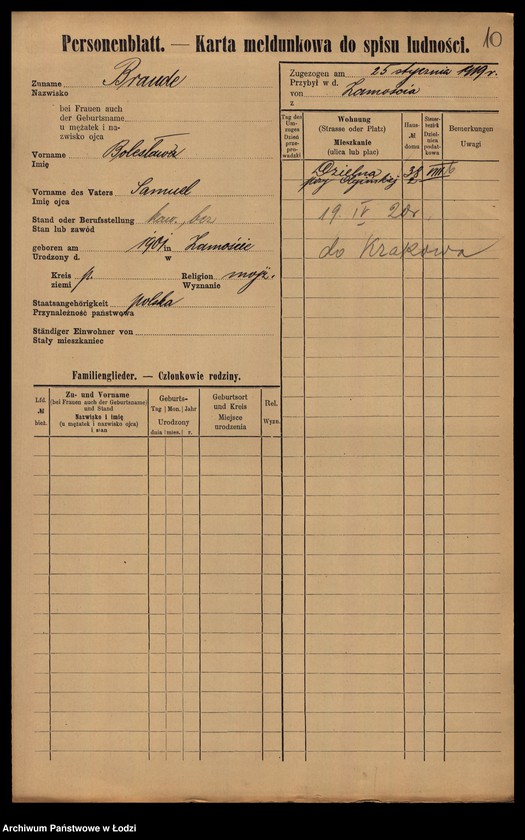 10
Personenblatt. — Karta meldunkowa do spisu ludności.
Zuname Braude
Nazwisko
bei Frauen auch
der Geburtsname
u mężatek i na-
zwisko ojca
Vorname Bolesława
Imię
Vorname des Vaters Samuel
Imię ojca
Stand oder Berufsstellung
Stan lub zawód
geboren am 1901 in Zamoście
Urodzony d. w
Kreis p. Religion mojż.
ziemi Wyznanie
Staatsangehörigkeit polska
Przynależność państwowa
Ständiger Einwohner von
Stały mieszkaniec
Zugezogen am 25 stycznia 1919 r.
Przybył w d.
von Zamościa
z
Tag des
Um-
zuges
Dzień
prze-
prowadzki
Wohnung
(Strasse oder Platz)
Mieszkanie
(ulica lub plac)
Haus-
№
domu
Steuer-
bezirk
Dziel-
nica
podat-
kowa
Bemerkungen
Uwagi
Dzielna 38 VIII
przy
19 IV 20 r.
do Krakowa
Familienglieder. — Członkowie rodziny.
Lfd.
№
bież.
Zu- und Vorname
(bei Frauen auch der Geburtsname)
und Stand
Nazwisko i imię
(u mężatek i nazwisko ojca)
i stan
Geburts-
Tag Mon. Jahr
Urodzony
dnia mies. r.
Geburtsort
und Kreis
Miejsce
urodzenia
Rel.
Wyzn.
Archiwum Państwowe w Łodzi